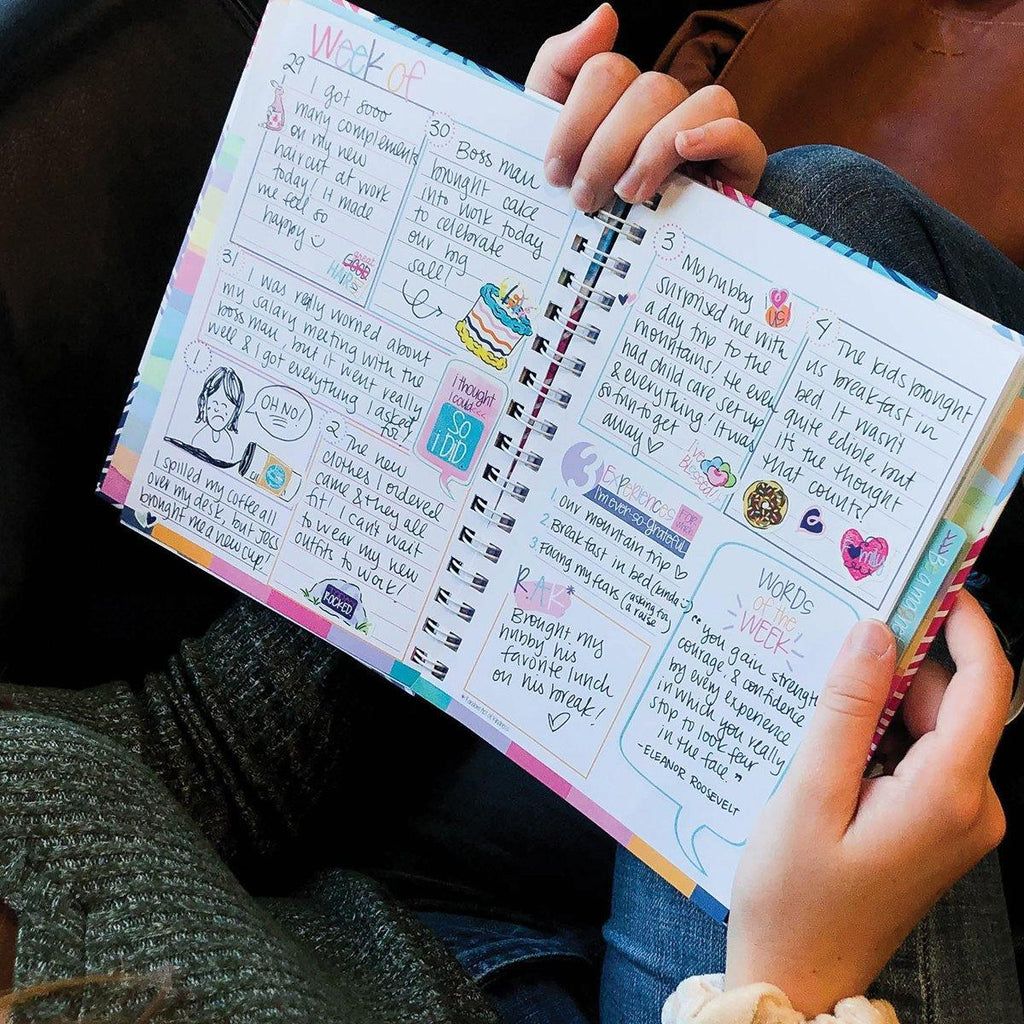 Week of
29
I got sooo
many complements
on my new
haircut at work
today! It made
me feel so
happy
great
GOOD
HAIR
30
Boss man
brought cake
into work today
to celebrate
our big
sale!
31
I was really worried about
my salary meeting with the
boss man, but it went really
well & I got everything I asked
for!
I thought
I could...
SO
I DID
1
OH NO!
I spilled my coffee all
over my desk, but Jess
brought me a new cup!
2
The new
clothes I ordered
came & they all
fit! I can't wait
to wear my new
outfits to work!
ROCKED
3
My hubby
surprised me with
a day trip to the
mountains! He even
had child care set up
& everything! It was
so fun to get
away
US
I've
Blessed
4
The kids brought
us breakfast in
bed. It wasn't
quite edible, but
it's the thought
that counts!
Family
3 EXPERIENCES FOR
WHICH
I'm ever-so-grateful
1. our mountain trip
2. Breakfast in bed (kinda)
3. Facing my fears (asking for
a raise)
RAK*
Brought my
hubby his
favorite lunch
on his break!
*Random Act of Kindness
WORDS
of the
WEEK
"You gain strength
courage, & confidence
by every experience
in which you really
stop to look fear
in the face."
-ELEANOR ROOSEVELT